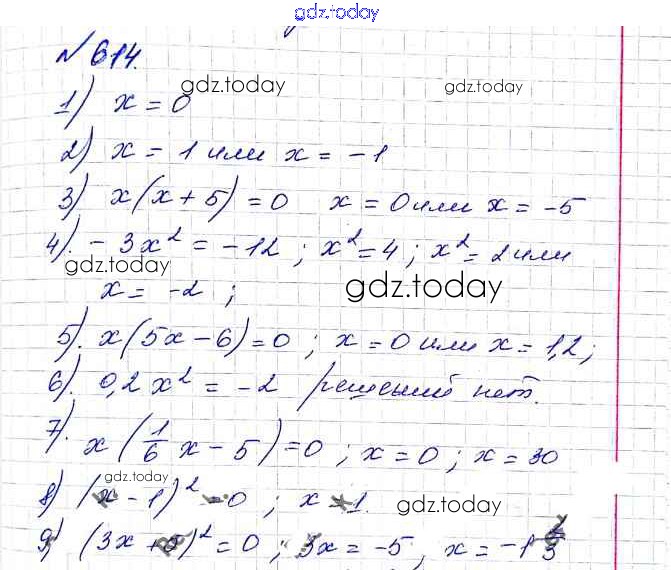 gdz.today
№ 614.
gdz.today gdz.today
1) x = 0
2) x = 1 или x = -1
3) x(x + 5) = 0 x = 0 или x = -5
4). - 3x² = -12 ; x² = 4 ; x² = 2 или
gdz.today
x = -2 ;
gdz.today
5). x(5x - 6) = 0 ; x = 0 или x = 1,2 ;
6). 0,2x² = -2 решений нет.
7). x(1/6 x - 5) = 0 ; x = 0 ; x = 30
gdz.today
8) (x - 1)² = 0 ; x = 1. gdz.today
9) (3x + 5)² = 0 ; 3x = -5, x = -1